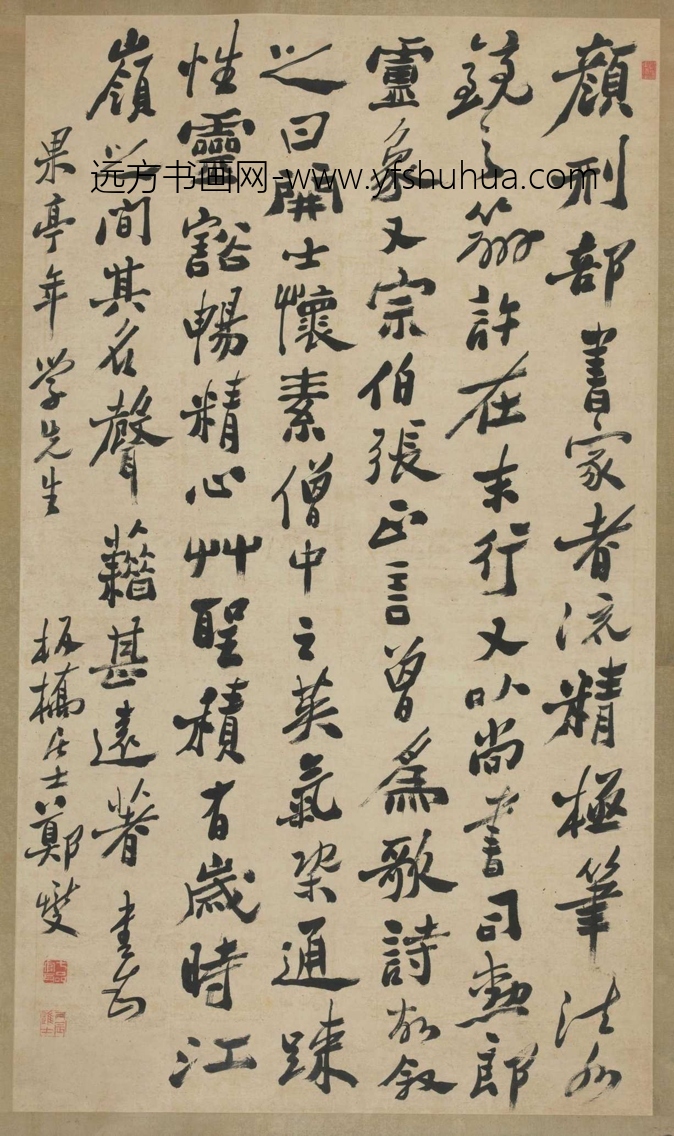 顏刑部書家者流精極筆法水
鏡之辨許在末行又以尚書司勲郎
盧象又宗伯張正言曾為歌詩故敘
之曰開士懷素僧中之英氣染通踈
性靈豁暢精心艸聖積有歲時江
嶺之間其名聲藉甚遠著 書為
果亭年學先生
板橋居士鄭燮
远方书画网-www.yfshuhua.com